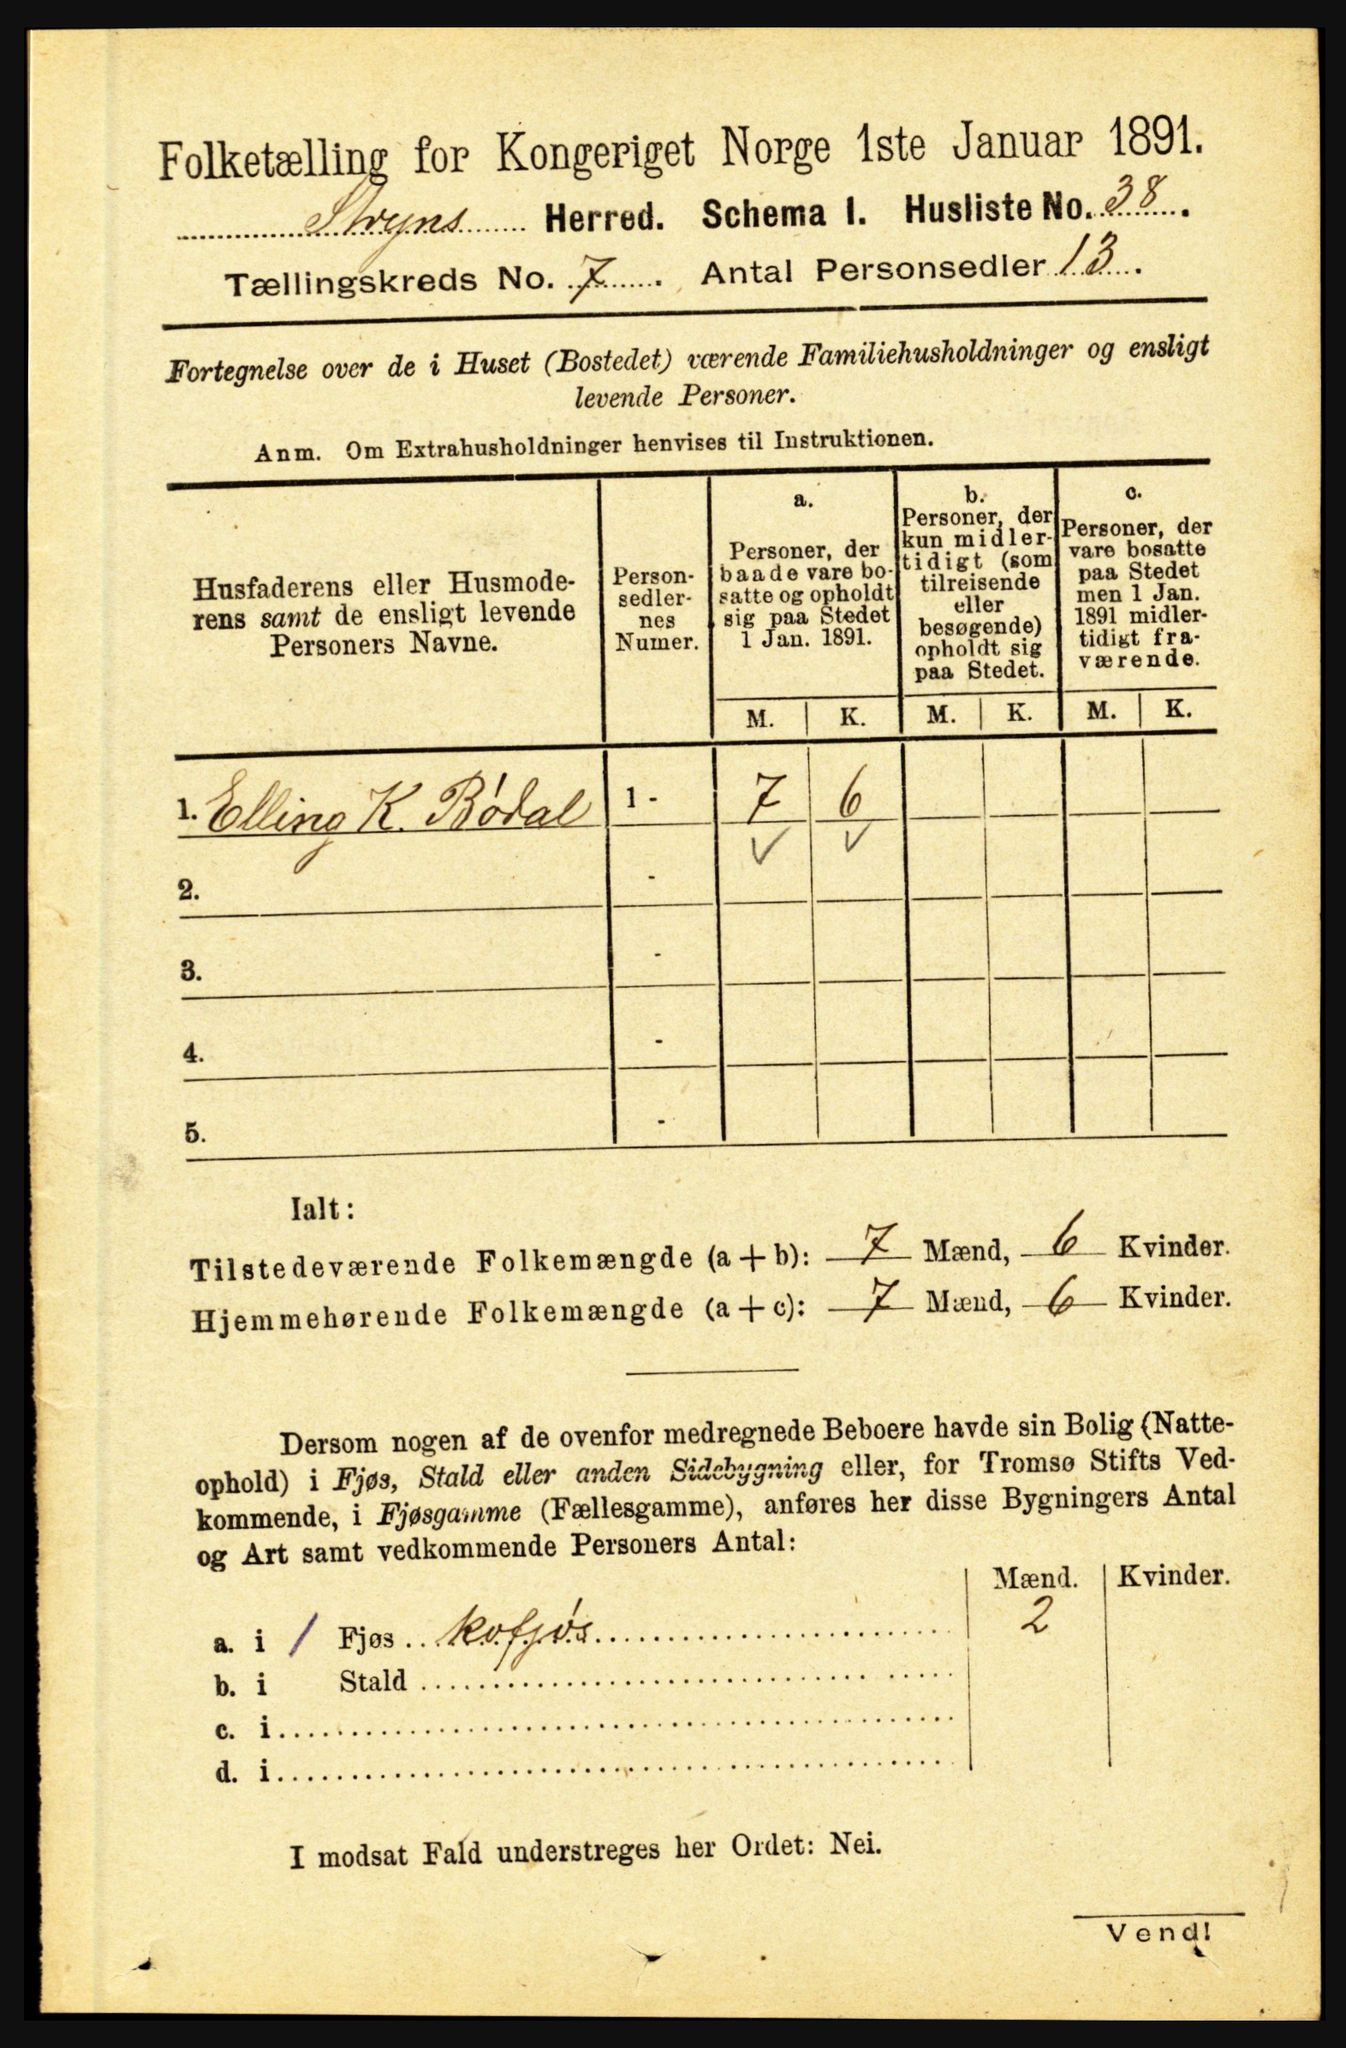 Folketælling for Kongeriget Norge 1ste Januar 1891.
Stryns Herred. Schema I. Husliste No. 38.
Tællingskreds No. 7. Antal Personsedler 13.
Fortegnelse over de i Huset (Bostedet) værende Familiehusholdninger og ensligt
levende Personer.
Anm. Om Extrahusholdninger henvises til Instruktionen.
Husfaderens eller Husmode-
rens samt de ensligt levende
Personers Navne.
Person-
sedler-
nes
Numer.
a.
Personer, der
baade vare bo-
satte og opholdt
sig paa Stedet
1 Jan. 1891.
b.
Personer, der
kun midler-
tidigt (som
tilreisende
eller
besøgende)
opholdt sig
paa Stedet.
c.
Personer, der
vare bosatte
paa Stedet
men 1 Jan.
1891 midler-
tidigt fra-
værende.
M. K. M. K. M. K.
1. Elling K. Bødal 1 - 7 6
2. -
3. -
4. -
5. -
Ialt:
Tilstedeværende Folkemængde (a + b): 7 Mænd, 6 Kvinder.
Hjemmehørende Folkemængde (a + c): 7 Mænd, 6 Kvinder.
Dersom nogen af de ovenfor medregnede Beboere havde sin Bolig (Natte-
ophold) i Fjøs, Stald eller anden Sidebygning eller, for Tromsø Stifts Ved-
kommende, i Fjøsgamme (Fællesgamme), anføres her disse Bygningers Antal
og Art samt vedkommende Personers Antal:
Mænd. Kvinder.
a. i 1 Fjøs kofjøs 2
b. i Stald
c. i
d. i
I modsat Fald understreges her Ordet: Nei.
Vend!